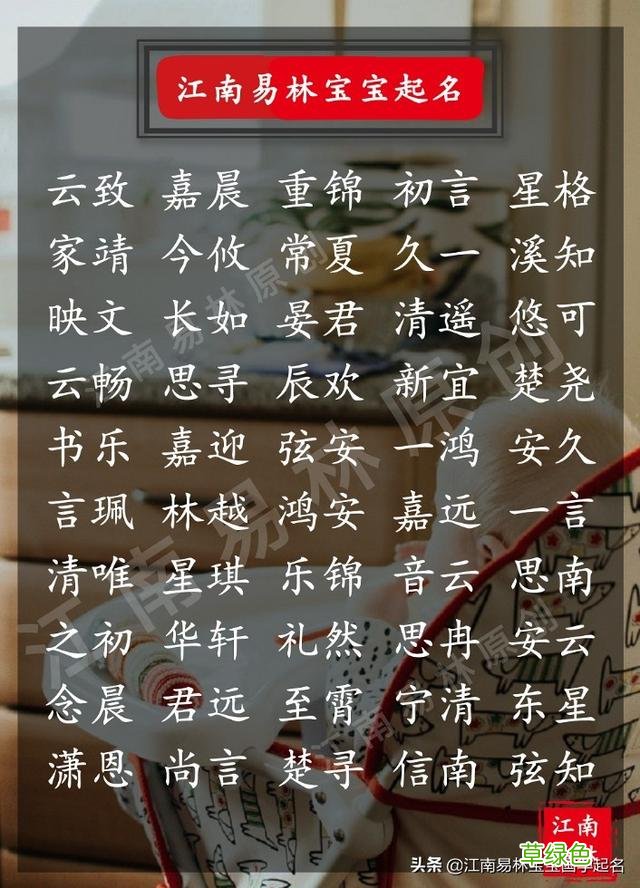 江南易林宝宝起名
云致 嘉晨 重锦 初言 星格
家靖 今攸 常夏 久一 溪知
映文 长如 晏君 清遥 悠可
云畅 思寻 辰欢 新宜 楚尧
书乐 嘉迎 弦安 一鸿 安久
言珮 林越 鸿安 嘉远 一言
清唯 星琪 乐锦 音云 思南
之初 华轩 礼然 思冉 安云
念晨 君远 至霄 宁清 东星
潇恩 尚言 楚寻 信南 弦知
江南易林原创
江南易林原创
江南易林原创
江南
草绿色
头条 @江南易林宝宝国学起名